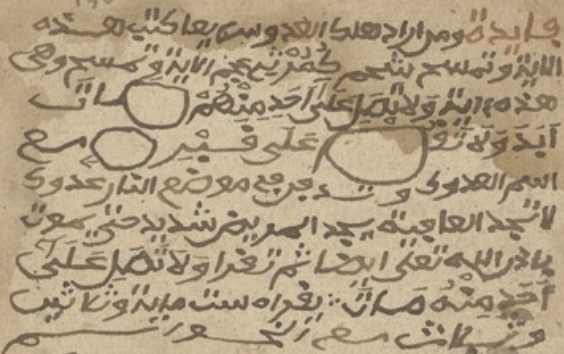 فايدة ومن اراد هلاك العدو سريعا كتب هذه
الاية وتمسح بشحم الاية وتمسح وهي
هذه ءاية وَلَا تُصَلِّ عَلَى أَحَدٍ مِنْهُمْ مات
أَبَدَ وَلَا تَقُ عَلَى قبره مع
اسم العدوك و في موضع النار عدوك
لا تجد العافية يجد المريض شديد حتى يموت
باذن الله تعلى ايضا ثم تقرا وَلَا تُصَلِّ عَلَى
أَحَدٍ مِنْهُ مَاتَ يقراه ست ماية وثلاثين
وثلاث مع